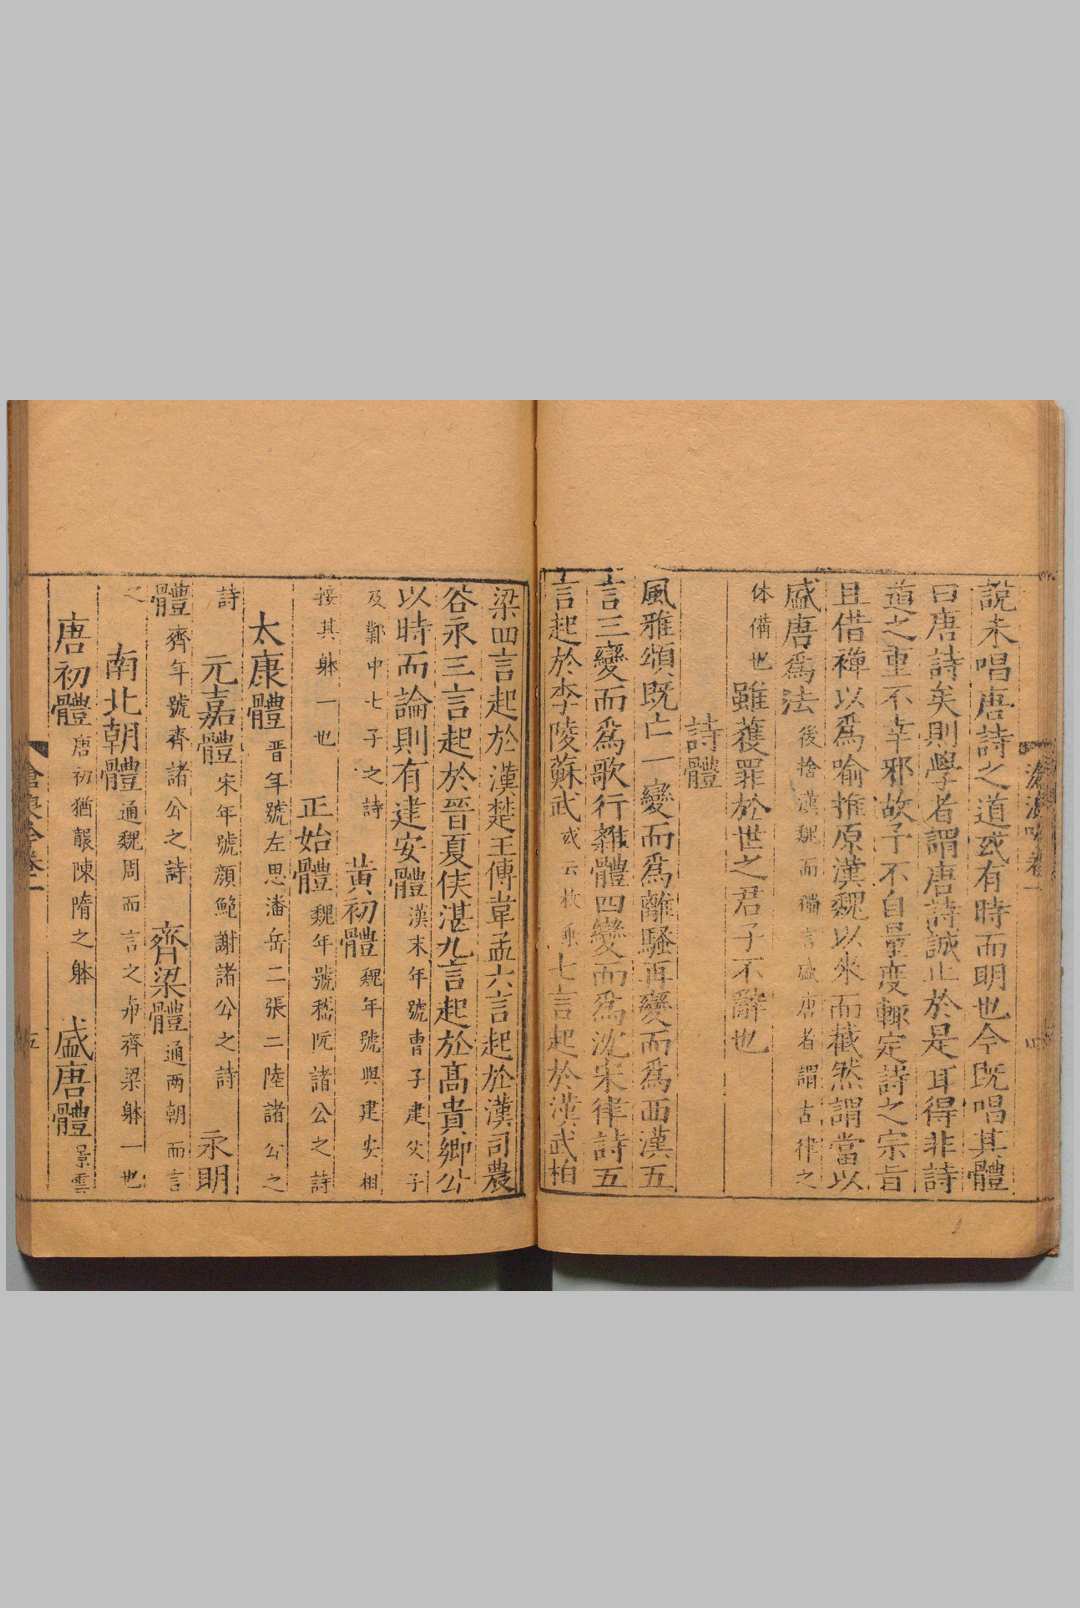 說未唱唐詩之道或有時而明也今既唱其體
曰唐詩矣則學者謂唐詩誠止於是耳得非詩
道之重不幸邪故予不自量度輒定詩之宗旨
且借禪以爲喻推原漢魏以來而截然謂當以
盛唐爲法後捨漢魏而獨言盛唐者謂古律之
体備也雖獲罪於世之君子不辭也
詩體
風雅頌既亡一變而爲離騷再變而爲西漢五
言三變而爲歌行雜體四變而爲沈宋律詩五
言起於李陵蘇武或云枚乘七言起於漢武柏
梁四言起於漢楚王傅韋孟六言起於漢司農
谷永三言起於晉夏侯湛九言起於高貴卿公
以時而論則有建安體漢末年號曹子建父子
及鄴中七子之詩黃初體魏年號與建安相
接其躰一也正始體魏年號嵇阮諸公之詩
太康體晋年號左思潘岳二張二陸諸公之
詩元嘉體宋年號顏鮑謝諸公之詩永明
體齊年號齊諸公之詩齊梁體通兩朝而言
之南北朝體通魏周而言之與齊梁躰一也
唐初體唐初猶襲陳隋之躰盛唐體景雲
滄浪吟卷一
四
滄浪吟卷一
五